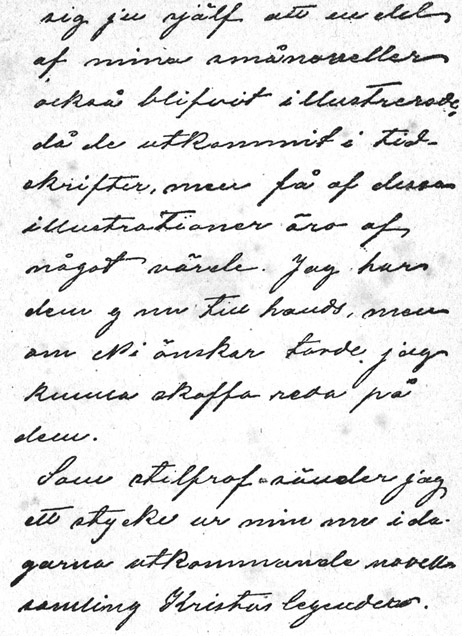 sig ju själf att en del
af mina smånoveller
också blifvit illustrerade,
då de utkommit i tid-
skrifter, men få af dessa
illustrationer äro af
något värde. Jag har
dem ej nu till hands, men
om Ni önskar torde jag
kunna skaffa reda på
dem.
Som stilprof sänder jag
ett stycke ur min nu i da-
garna utkommande novell-
samling Kristuslegender.